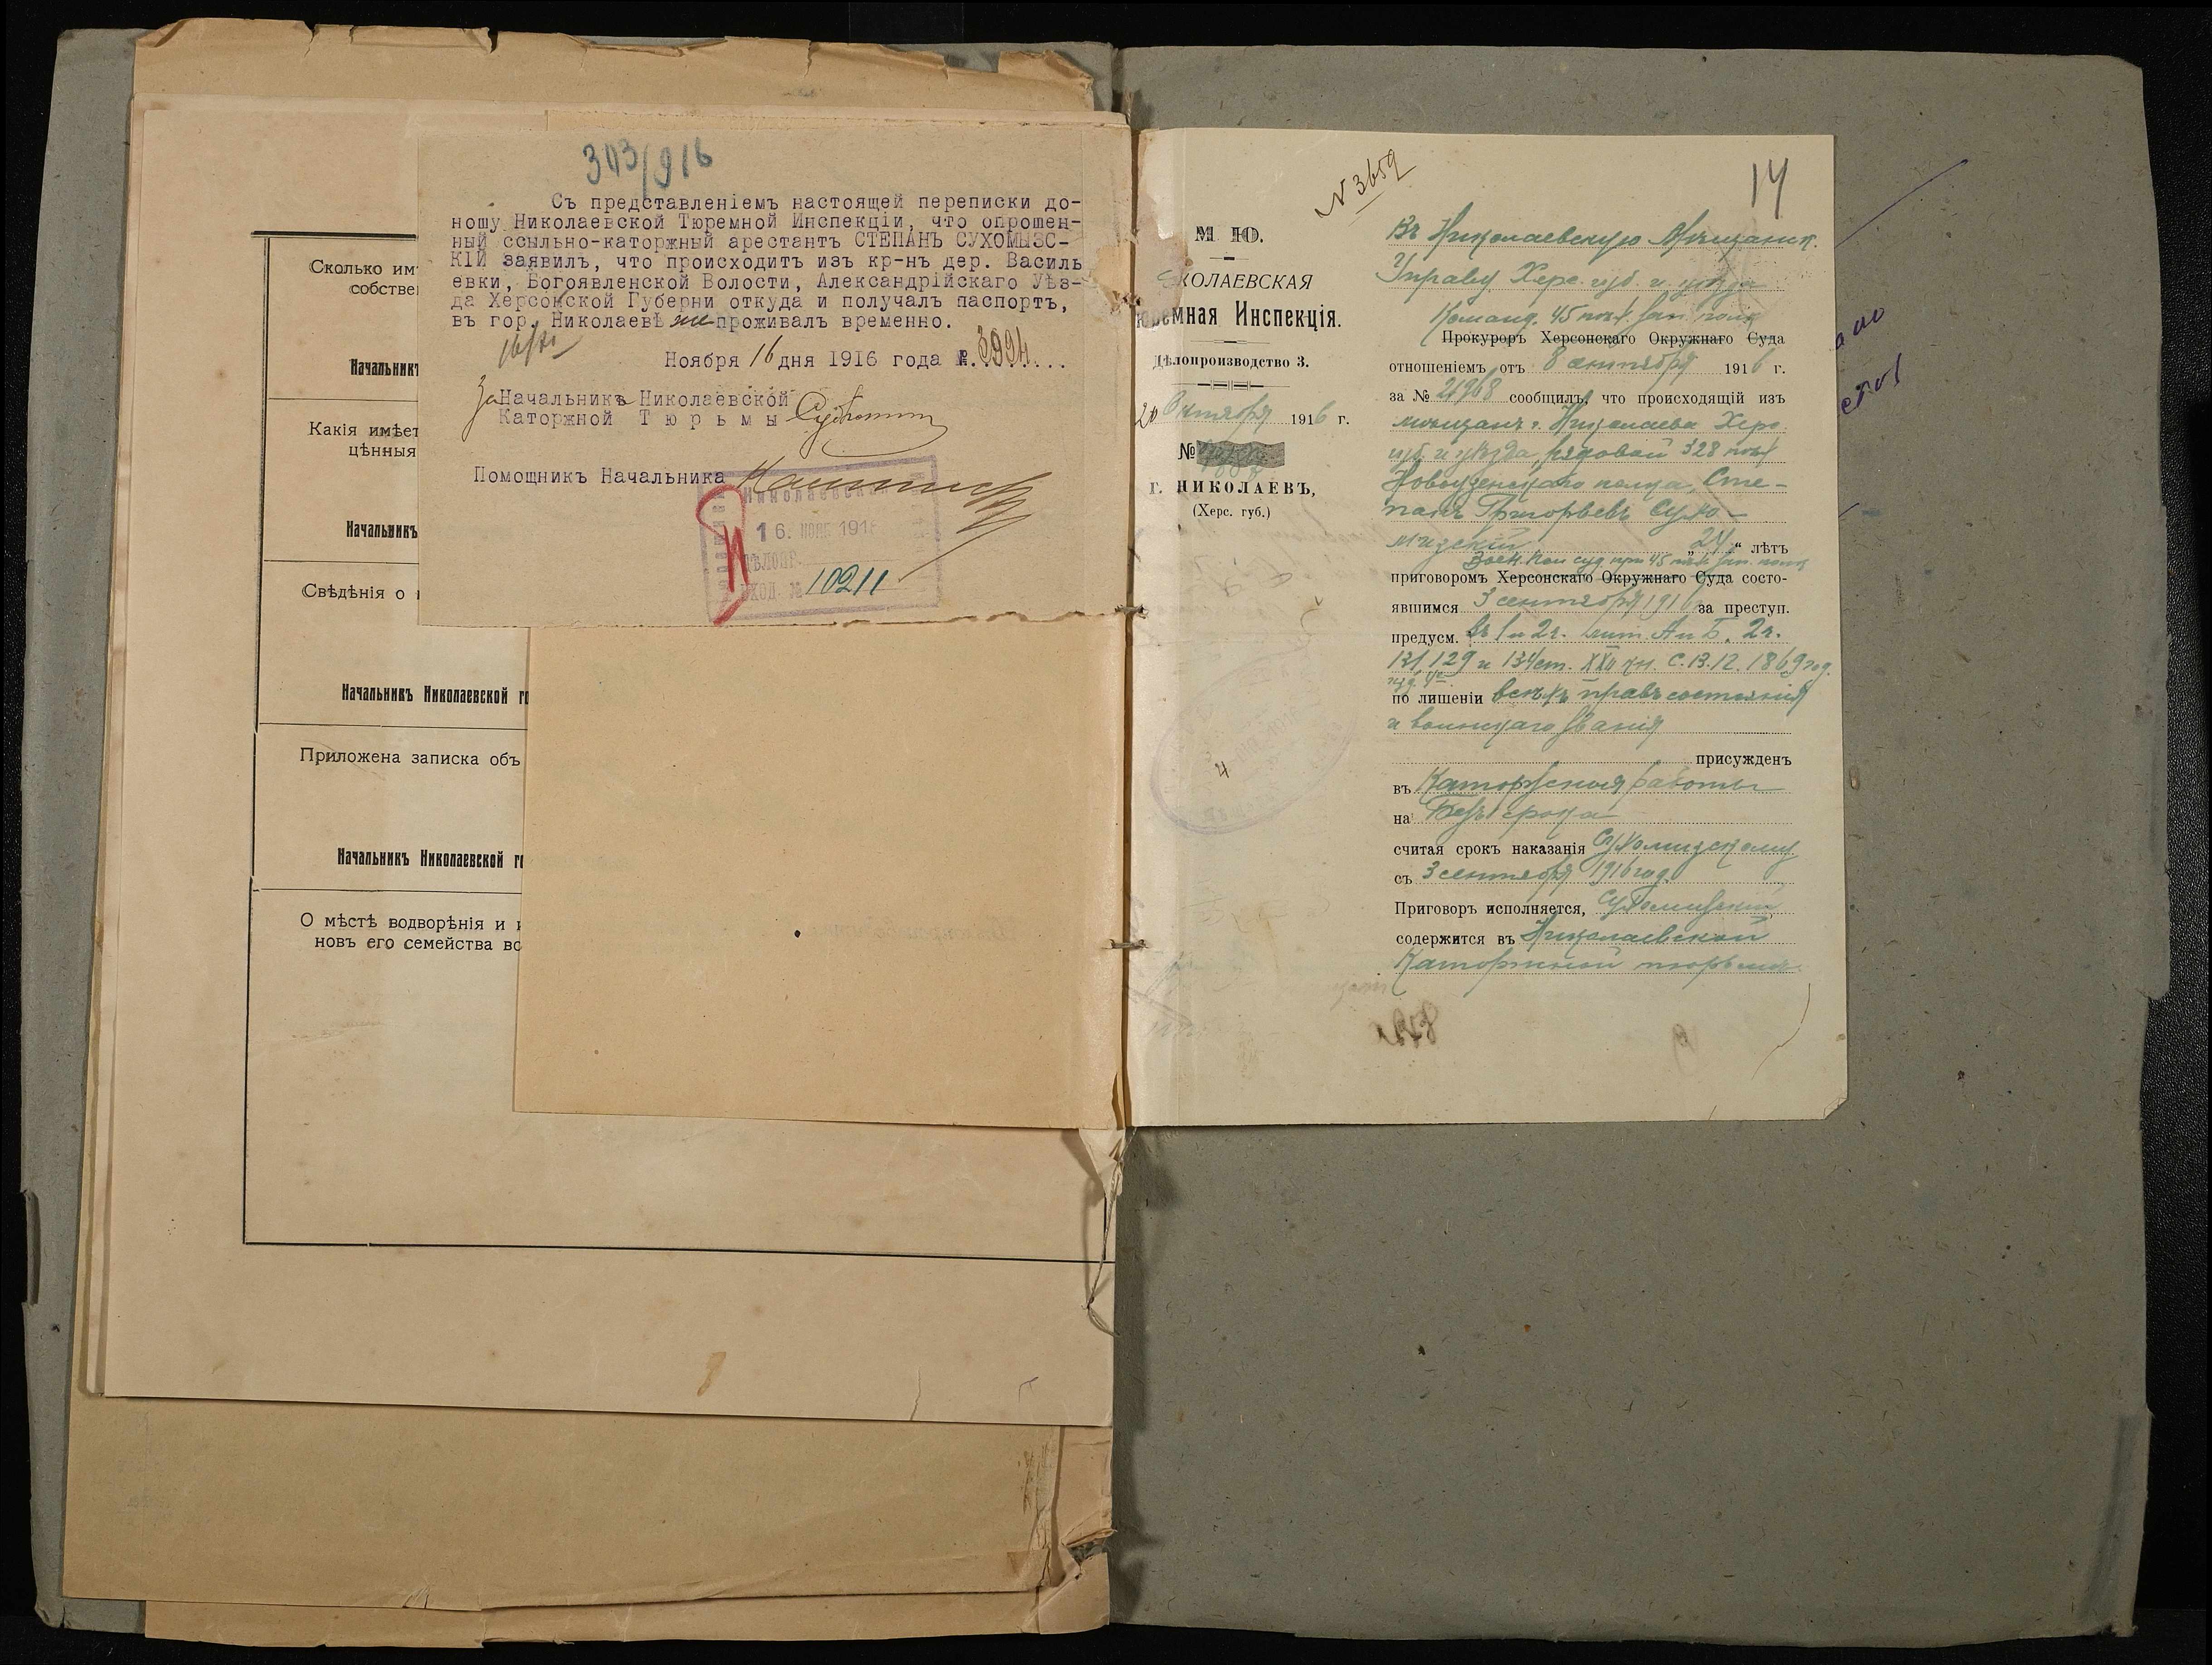 303/916
Съ представленіемъ настоящей переписки до-
ношу Николаевской Тюремной Инспекціи, что опрошен-
ный ссыльно-каторжный арестантъ СТЕПАНЪ СУХОМЫЗС-
КІЙ заявилъ, что происходитъ изъ кр-нъ дер. Василь
евки, Богоявленской Волости, Александрійскаго Уѣз-
да Херсонской Губерни откуда и получалъ паспортъ,
въ гор. Николаевѣ же проживалъ временно.
16/XI
Ноября 16 дня 1916 года №. 3994....
За Начальника Николаевской
Каторжной Тюрьмы
Помощникъ Начальника
Николаевская
16. НОЯБ 1916
ДѢЛОПР.
ВХОД. № 10211
Сколько им
собстве
Начальникъ
Какія имѣет
цѣнныя
Начальникъ
Свѣдѣнія о
Начальникъ Николаевской г
Приложена записка объ
Начальникъ Николаевской г
О мѣстѣ водворѣнія и
новъ его семейства во
N 3659
14
М. Ю.
КОЛАЕВСКАЯ
юремная Инспекція.
Дѣлопроизводство 3.
20 Октября 1916 г.
№
Г. НИКОЛАЕВЪ,
(Херс. губ.)
Въ Николаевскую Мѣщанск.
Управу Херс. губ. и уѣзда
Команд. 45 пѣх. зап. полк
Прокуроръ Херсонскаго Окружнаго Суда
отношеніемъ отъ 8 октября 1916 г.
за № 21968 сообщилъ, что происходящій изъ
мѣщанъ г. Николаева Херс.
губ. и уѣзда, рядовой 328 пѣх
Новоузенскаго полка, Сте-
панъ Григорьевъ Сухо-
мизскій „24“ лѣтъ
Воен. Пол суд при 45 пѣх. зап. полку
приговоромъ Херсонскаго Окружнаго Суда состо-
явшимся 3 сентября 1916 за преступ.
предусм. въ 1 и 2 ч. лит А и Б. 2 ч.
131, 129 и 134 ст. XXII кн. С.В.П. 1869 год.
изд. 4е
по лишеніи всѣхъ правъ состоянія
и воинскаго званія
присужденъ
въ Каторжныя работы
на Безъ срока
считая срокъ наказанія Сухомизскому
съ 3 сентября 1916 год.
Приговоръ исполняется, Сухомизскій
содержится въ Николаевской
Каторжной тюрьмѣ.